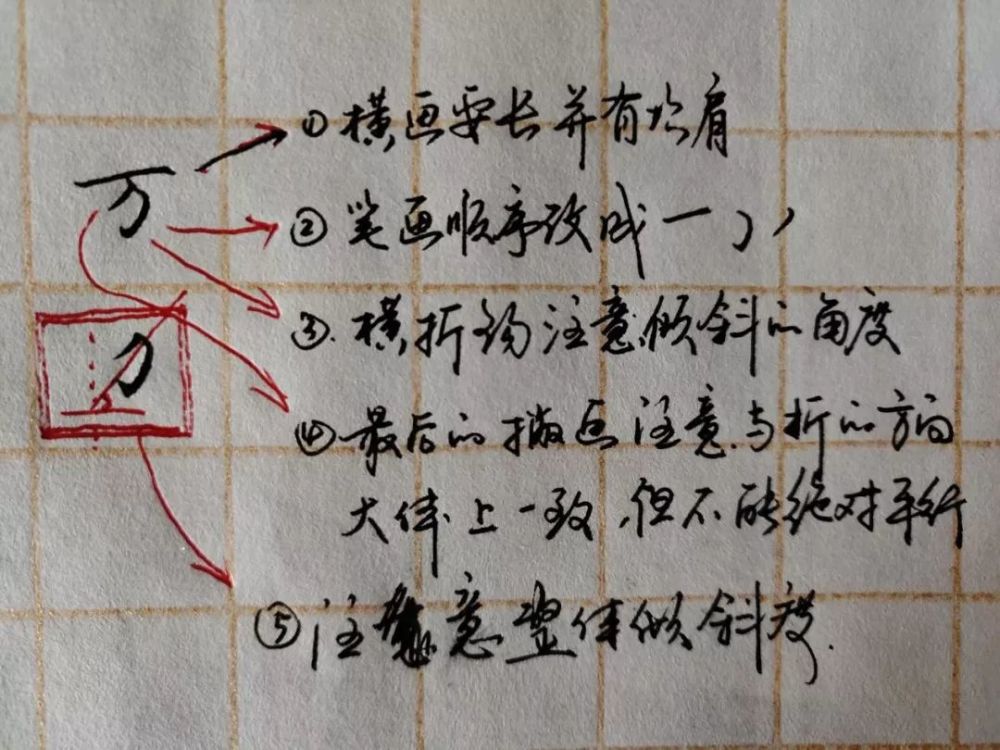 万
①横画要长并有抗肩
②笔画顺序改成一㇆丿
③.横折钩注意倾斜的角度
④最后的撇画注意与折的方向
大体上一致,但不能绝对平行
⑤注意整体倾斜度.